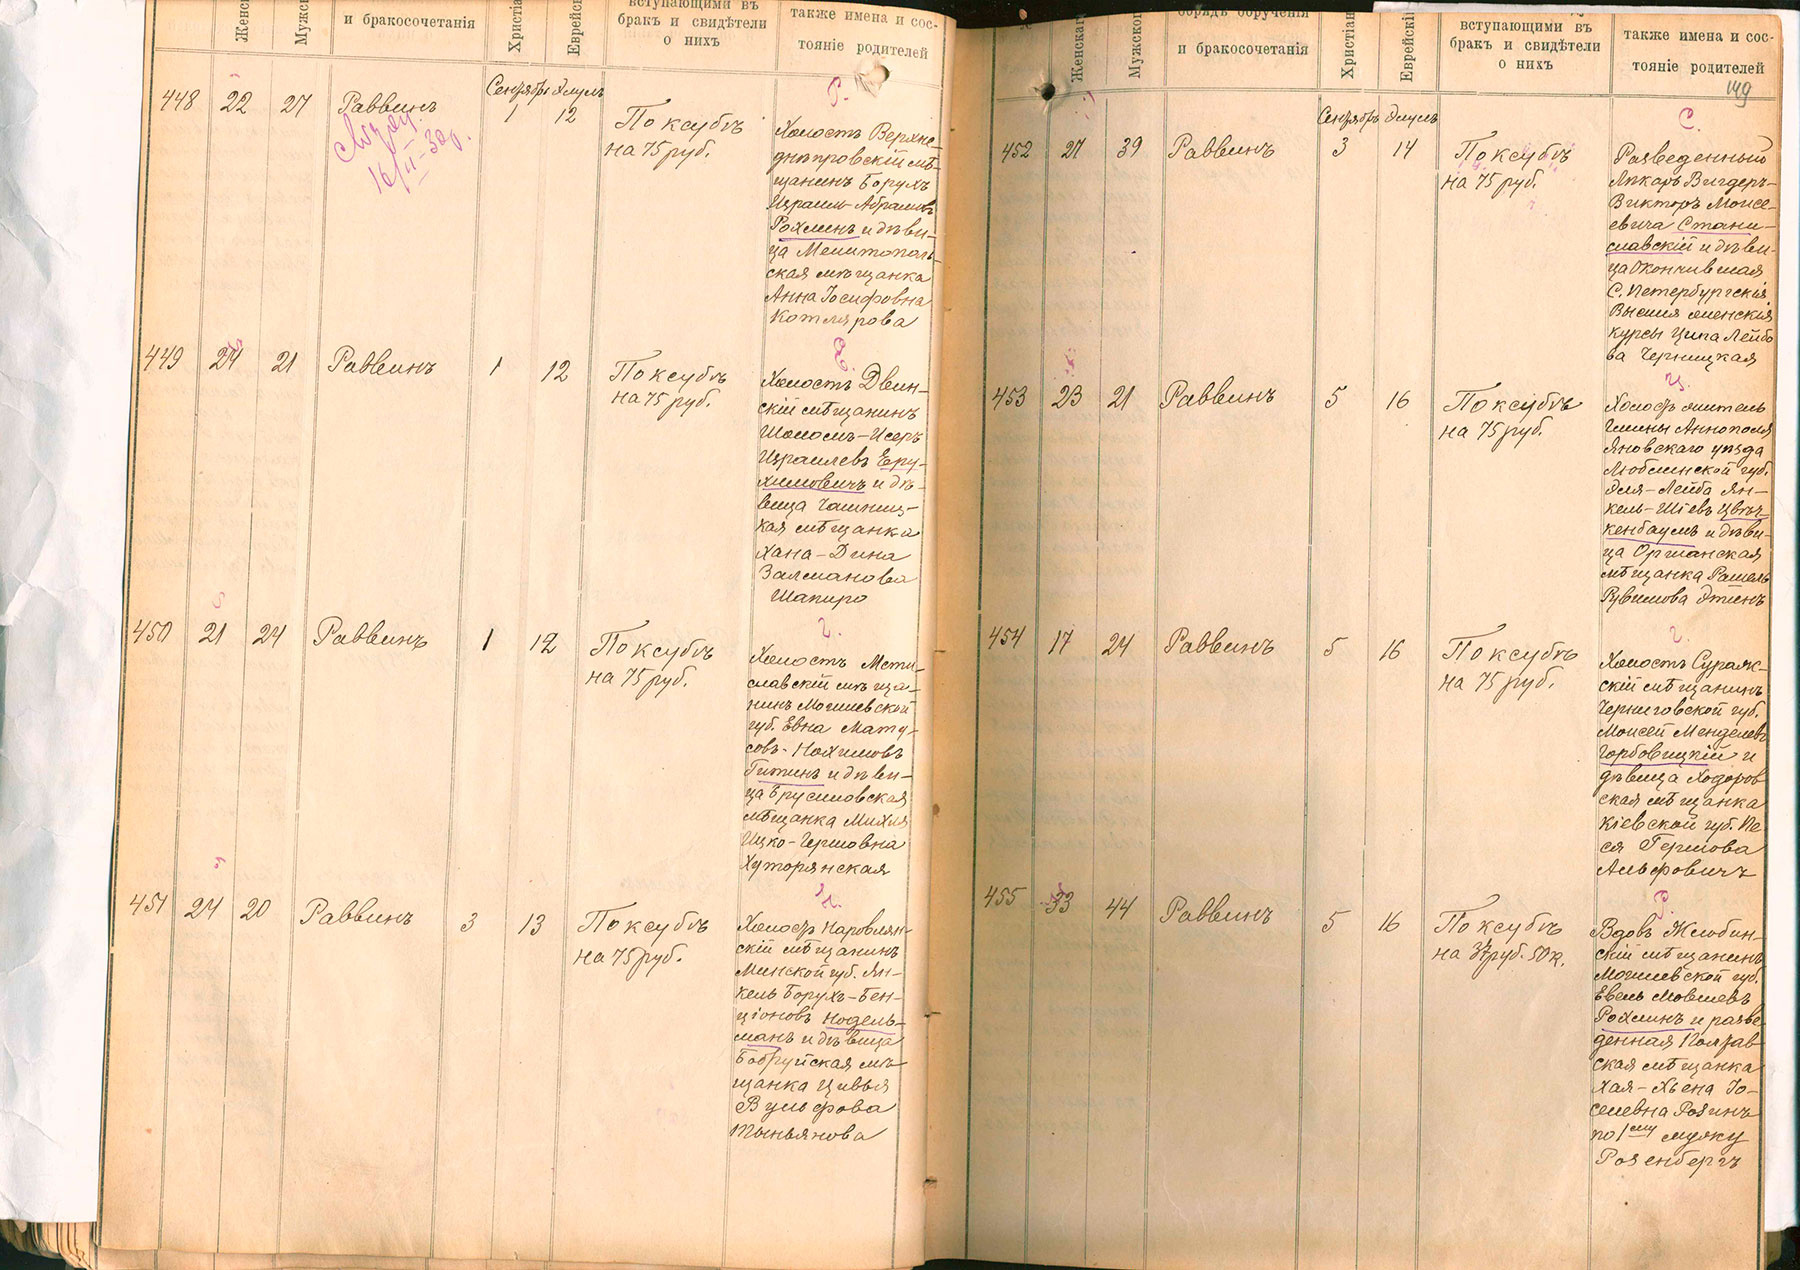 Женс
Мужск
и бракосочетанія
Христіа
Еврейск
вступающими въ
бракъ и свидѣтели
о нихъ
также имена и сос-
тояніе родителей
Сентябрь Элулъ
448 22 27 Раввинъ 1 12 По ксубѣ
на 75 руб.
16/II-30 г.
Р.
Холостъ Верхне-
днѣпровскій мѣ-
щанинъ Борухъ
Израиль-Абрамовъ
Рохлинъ и дѣви-
ца Мелитополь-
ская мѣщанка
Анна Іосифовна
Котлярова
449 24 21 Раввинъ 1 12 По ксубѣ
на 75 руб.
Е.
Холостъ Двин-
скій мѣщанинъ
Шоломъ-Исеръ
Израилевъ Еру-
химовичъ и дѣ-
вица Чашниц-
кая мѣщанка
Хана-Дина
Залманова
Шапиро
450 21 24 Раввинъ 1 12 По ксубѣ
на 75 руб.
Г.
Холостъ Мсти-
славскій мѣща-
нинъ Могилевской
губ. Евна Мату-
совъ-Нохимовъ
Гитинъ и дѣви-
ца Брусиловская
мѣщанка Михля
Ицко-Гершовна
Хуторянская
451 24 20 Раввинъ 3 13 По ксубѣ
на 75 руб.
Н.
Холостъ Наровлян-
скій мѣщанинъ
Минской губ. Ян-
кель Борухъ-Бен-
ціоновъ Нодель-
манъ и дѣвица
Бобруйская мѣ-
щанка Цивья
Вульфова
Тыньянова
Женскаг
Мужског
обрядъ обрученія
и бракосочетанія
Христіан
Еврейскі
вступающими въ
бракъ и свидѣтели
о нихъ
также имена и сос-
тояніе родителей
149
Сентябрь Элулъ
452 27 39 Раввинъ 3 14 По ксубѣ
на 75 руб.
С.
Разведенный
Лѣкарь Вигдеръ-
Викторъ Моисе-
евича Стани-
славскій и дѣви-
ца Окончившая
С. Петербургскія
Высшія женскія
курсы Ципа Лейбо
ва Черницкая
453 23 21 Раввинъ 5 16 По ксубѣ
на 75 руб.
Ц.
Холостъ житель
Гмины Аннополя
Яновскаго уѣзда
Люблинской губ.
Эля-Лейба Ян-
кель-Шіевъ Цвѣч-
кенбаумъ и дѣви-
ца Оргіанская
мѣщанка Рашель
Рувимова
454 17 24 Раввинъ 5 16 По ксубѣ
на 75 руб.
Г.
Холостъ Сураж-
скій мѣщанинъ
Черниговской губ.
Моисей Менделевъ
Горбовицкій и
дѣвица Ходоров
ская мѣщанка
Кіевской губ. Пе
ся Гершова
Альфовичъ
455 33 44 Раввинъ 5 16 По ксубѣ
на 37 руб. 50 к.
Р.
Вдовъ Жлобин-
скій мѣщанинъ
Могилевской губ.
Евель Мовшевъ
Рохлинъ и разве
денная Полтав
ская мѣщанка
Хая-Хьена Іо-
селевна Розинъ
по 1му мужу
Розенбергъ